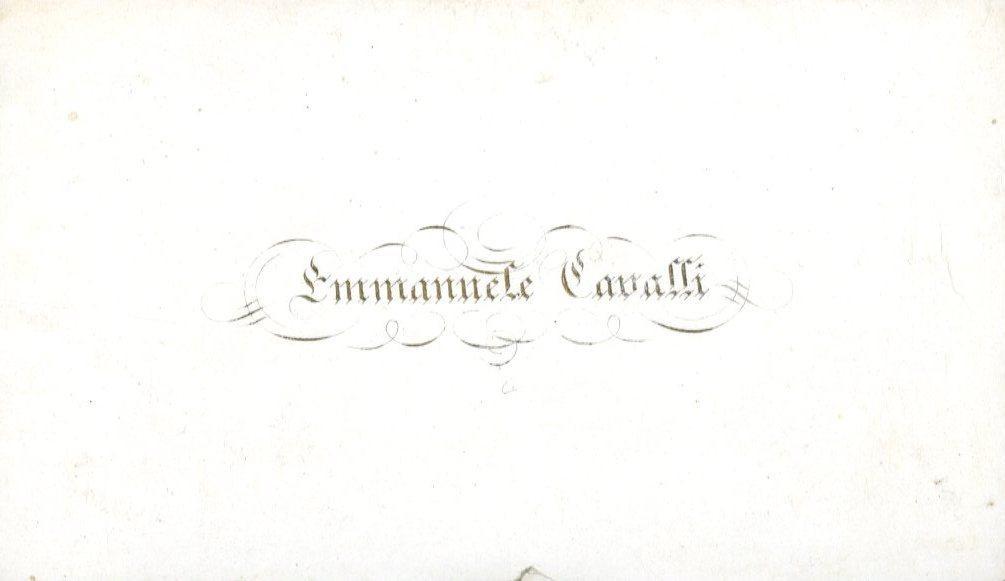 Emmanuele Cavalli